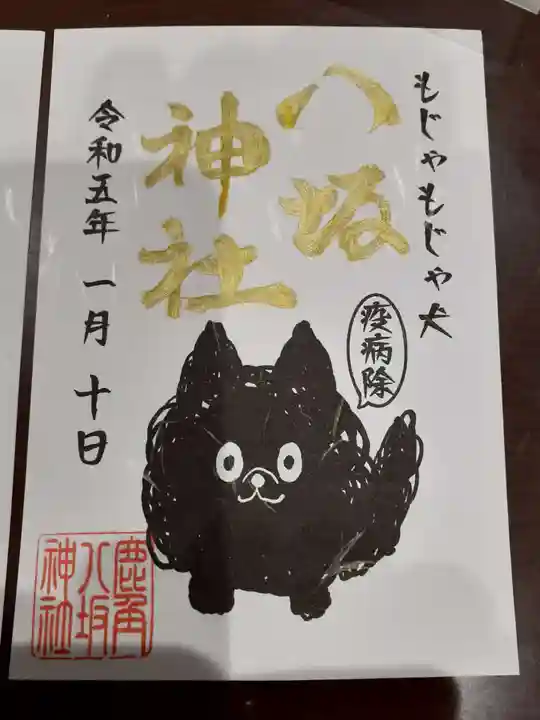 もじゃもじゃ犬
八坂
神社
疫病除
令和五年 一月 十日
鹿角
八坂
神社